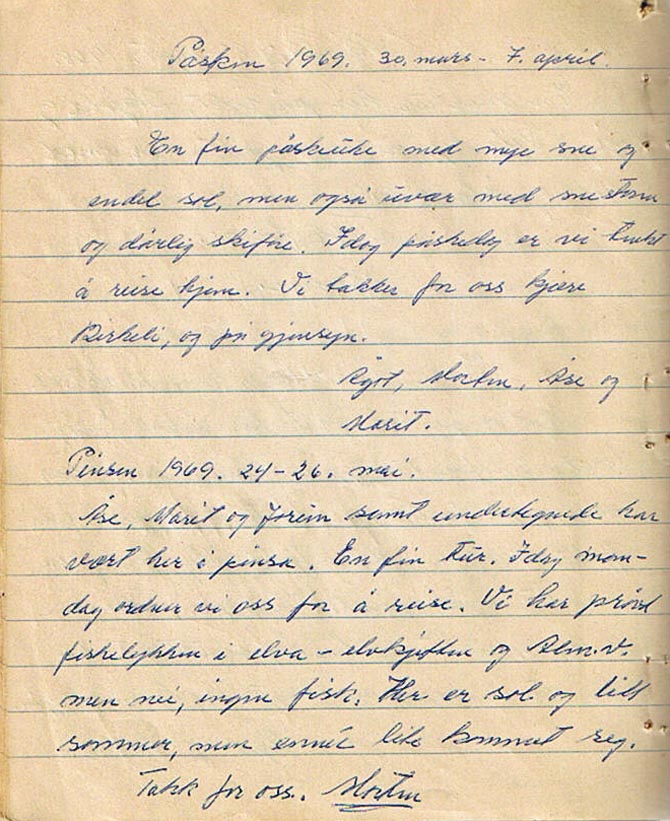 Påsken 1969. 30. mars - 7. april.
En fin påskeuke med mye sne og
endel sol, men også uvær med sne storm
og dårlig skiføre. Idag påskedag er vi
å reise hjem. Vi takker for oss kjære
Birkeli, og på gjensyn.
Ågot, Morten, Åse og
Marit.
Pinsen 1969. 24-26. mai.
Åse, Marit og samt undertegnede har
vært her i pinsa. En fin tur. Idag man-
dag ordner vi oss for å reise. Vi har prøvd
fiskelykken i elva - elvkjeften og Alm.v.
men nei, ingen fisk. Her er sol og litt
sommer, men ennå lite kommet seg.
Takk for oss. Morten